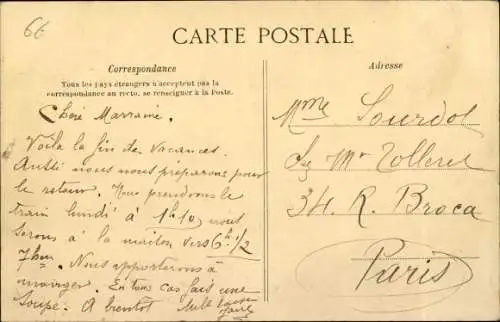 6E
CARTE POSTALE
Correspondance
Tous les pays étrangers n'acceptent pas la
correspondance au recto, se renseigner à la Poste.
Adresse
Chère Marraine.
Voilà la fin de vacances.
Aussi nous nous préparons pour
le retour. Nous prendrons le
train lundi à 1h10, nous
serons à la maison vers 6h 1/2
7 heures. Nous apporterons à
manger. En tous cas fais une
soupe. A bientôt
Mme Lourdot
Chez Mr Tolleret
34. R. Broca
Paris